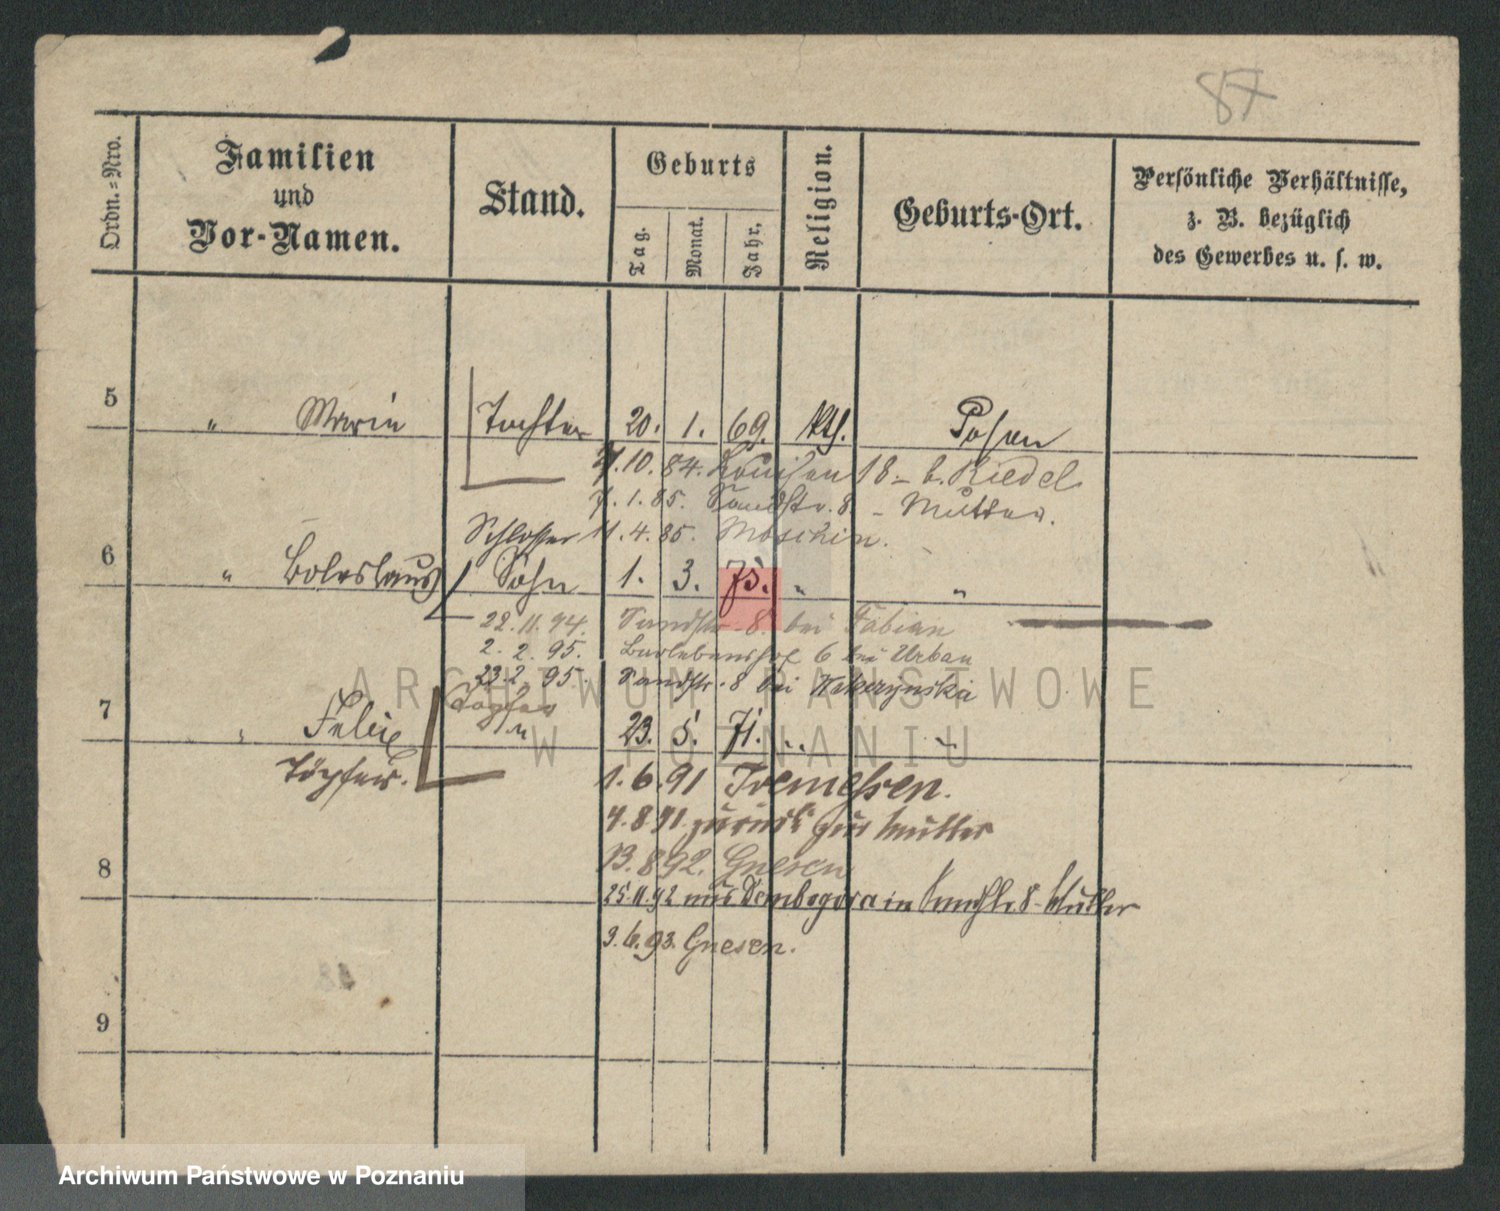 87
Ordn.=Nro.
Familien
und
Vor-Namen.
Stand.
Geburts
Tag.
Monat.
Jahr.
Religion.
Geburts-Ort.
Persönliche Verhältnisse,
z. B. bezüglich
des Gewerbes u. s. w.
5 " Marie Tochter 20. 1. 69. kth. Posen
7.10.84. Louisen 18 - b. Riedel
7.1.85. Sandstr. 8 - Mutter.
Schlosser 11.4.85. Moschin.
6 " Boleslaus Sohn 1. 3. 75. " "
22.11.94. Sandstr. 8. bei Fabian
2.2.95. Berlebenshof 6 bei Urban
23.2.95. Sandstr. 8 bei
ARCHIWUM PAŃSTWOWE
W POZNANIU
7 " Felix 23. 5. 71. " "
Töpfer.
1.6.91 Tremessen.
4.8.91 zurück zur Mutter
13.8.92. Gnesen
8
25.11.92 aus Dembogora in Sandstr. 8 - Mutter
3.6.93. Gnesen.
9
Archiwum Państwowe w Poznaniu